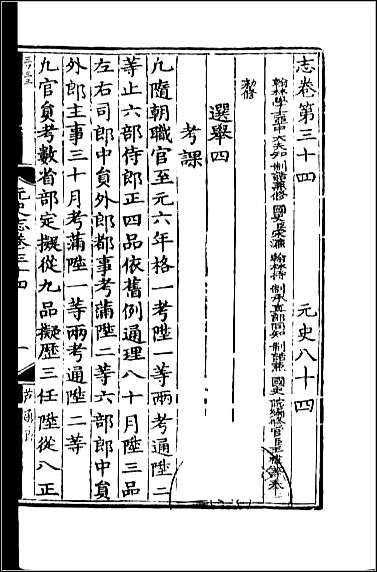 志卷第三十四　元史八十四
翰林學士亞中大夫知制誥兼修國史臣宋濂翰林待制承直郎同知制誥兼國史院編修官臣王禕等奉
勑修
選舉四
考課
凡隨朝職官至元六年格一考陞一等兩考通陞二
等止六部侍郎正四品依舊例通理八十月陞三品
左右司郎中員外郎都事考滿陞二等六部郎中員
外郎主事三十月考滿陞一等兩考通陞二等
凡官員考數省部定擬從九品擬歷三任陞從八正
元史志卷三十四
一